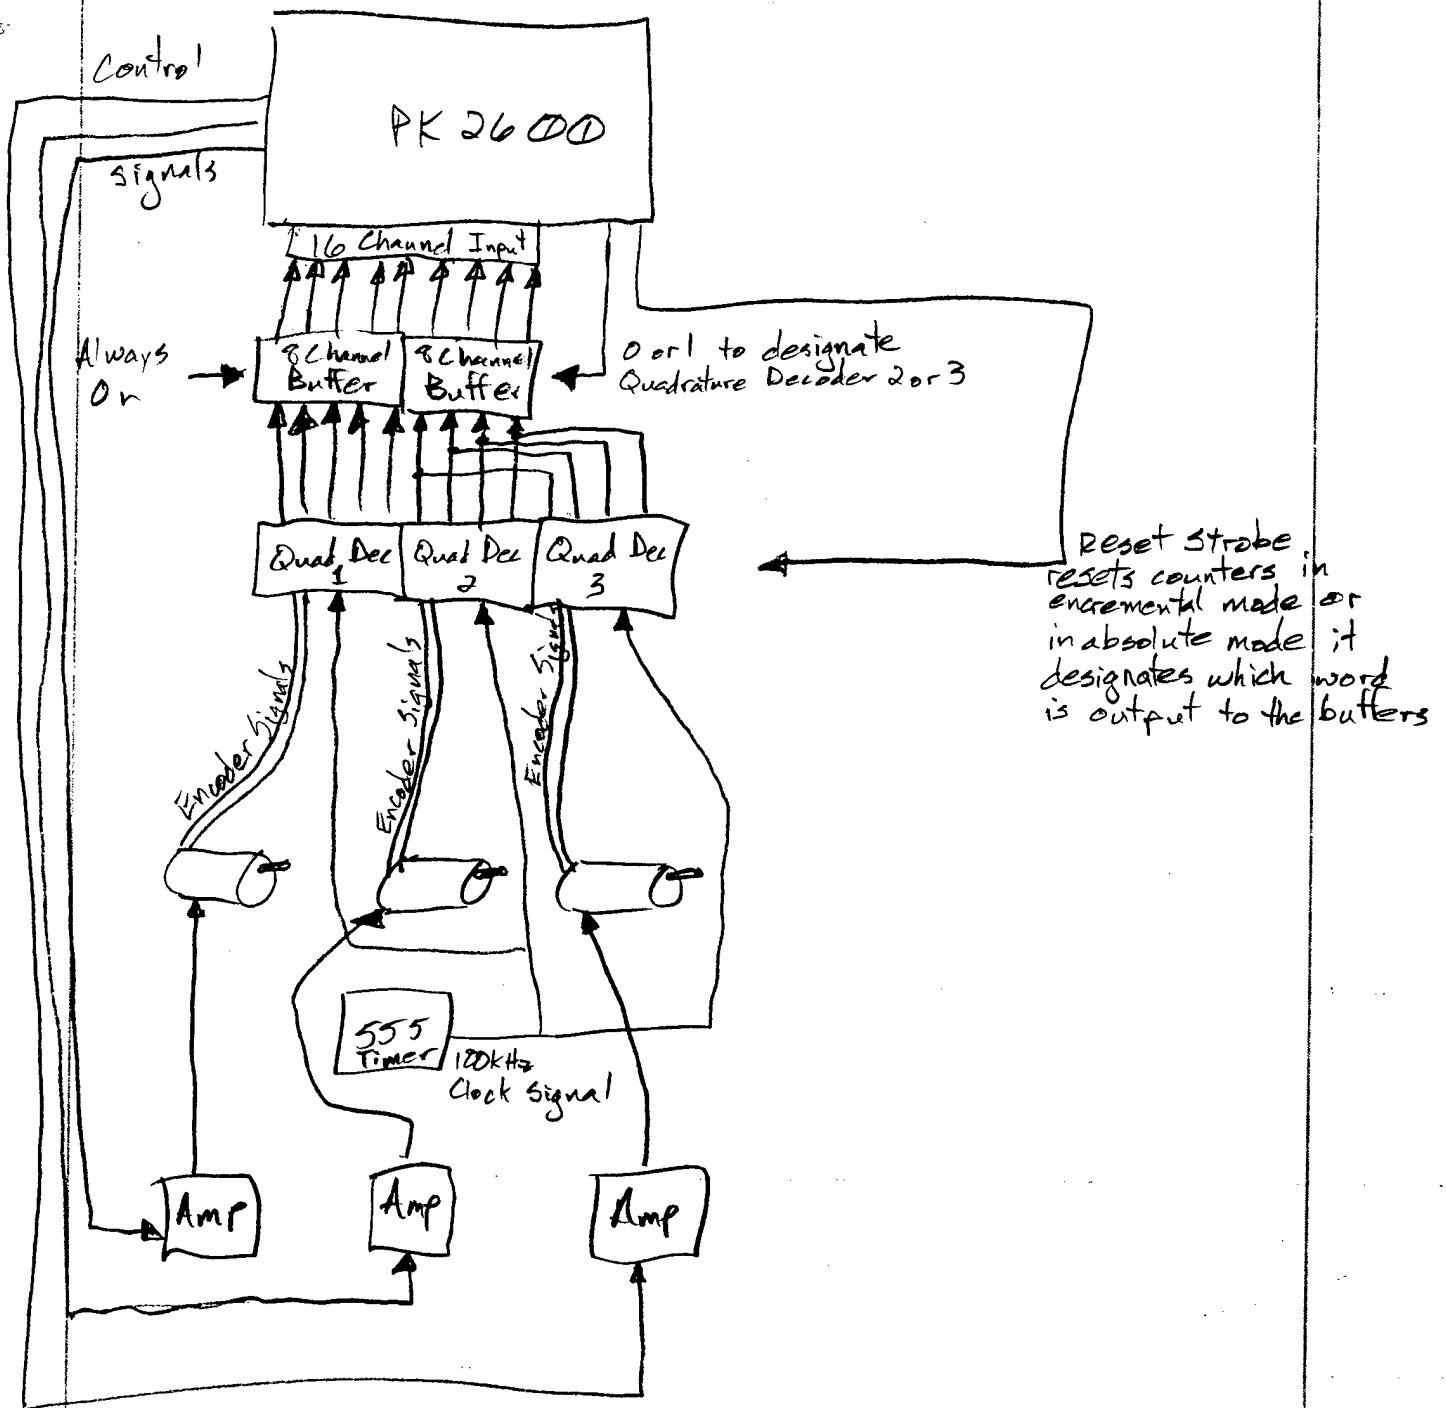 Control
PK 2600
Signals
16 Channel Input
Always
On
8 Channel
Buffer
8 Channel
Buffer
0 or 1 to designate
Quadrature Decoder 2 or 3
Quad Dec
1
Quad Dec
2
Quad Dec
3
Reset Strobe
resets counters in
encremental mode or
in absolute mode it
designates which word
is output to the buffers
Encoder Signals
Encoder Signals
Encoder Signals
555
Timer
100kHz
Clock Signal
Amp
Amp
Amp